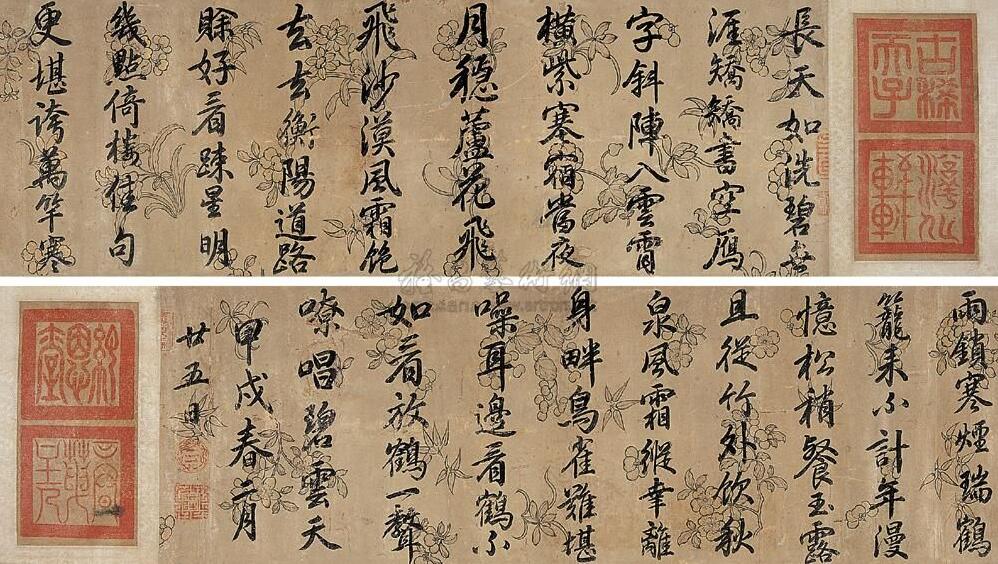 古稀天子
淳化軒
長天如洗碧無
涯矯矯書空鴈
字斜陣入雲霄
橫紫塞宿當夜
月穩蘆花飛
飛沙漠風霜飽
去去衡陽道路
賒好看疎星明
幾點倚樓佳句
更堪誇萬竿寒
雨鎖寒煙瑞鶴
籠來不計年漫
憶松稍餐玉露
且從竹外飲秋
泉風霜縱幸離
身畔鳥雀難堪
噪耳邊看鶴不
如看放鶴一聲
嘹唱碧雲天
甲戌春二月
廿五日